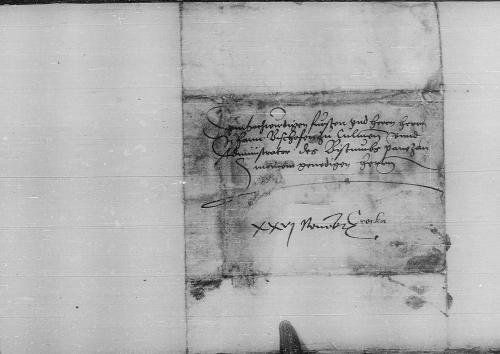 Dem hochwirdigen fursten und herrn herrn
Bischofen zu Culmen unnd
Administrator des Bistumbs
meinem genedigen herrn
XXVI